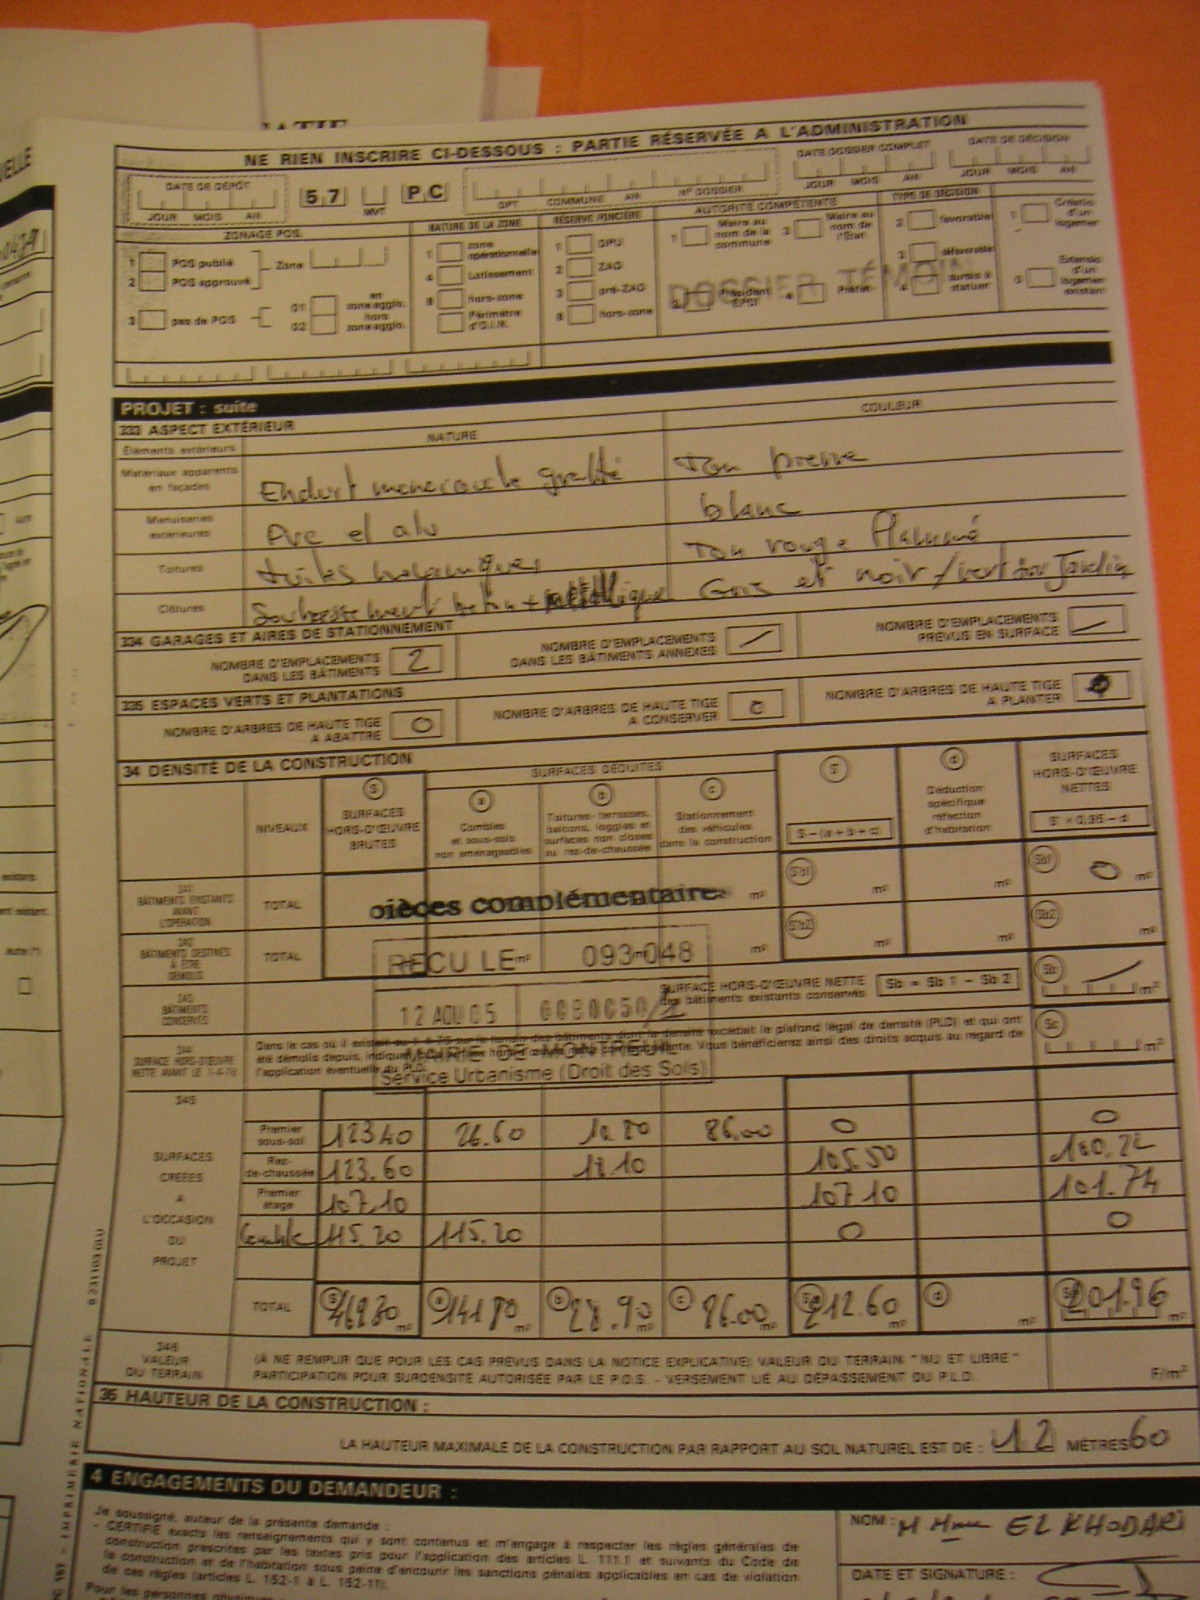 NE RIEN INSCRIRE CI-DESSOUS : PARTIE RÉSERVÉE A L'ADMINISTRATION
DATE DE DÉPÔT
JOUR MOIS AN
5.7 PC
MVT
DPT COMMUNE AN Nº DOSSIER
DATE DOSSIER COMPLET
JOUR MOIS AN
DATE DE DÉCISION
JOUR MOIS AN
ZONAGE POS
1 POS publié
2 POS approuvé
Zone
3 pas de POS
01 en zone agglo.
02 hors zone agglo.
NATURE DE LA ZONE
1 zone opérationnelle
4 Lotissement
8 hors-zone
Périmètre d'O.I.N.
RÉSERVE FONCIÈRE
1 DPU
2 ZAD
3 pré-ZAD
8 hors-zone
AUTORITÉ COMPÉTENTE
1 Maire au nom de la commune
3 Maire au nom de l'État
2 Président EPCI
4 Préfet
TYPE DE DÉCISION
2 favorable
3 défavorable
4 sursis à statuer
DOSSIER TÉMOIN
PROJET : suite
333 ASPECT EXTÉRIEUR
NATURE
COULEUR
Éléments extérieurs
Matériaux apparents en façades
Enduit monocouche gratté
Ton pierre
Menuiseries extérieures
Pvc et alu
blanc
Toitures
tuiles mécaniques
Ton rouge flammé
Clôtures
Soubassement béton + métallique
Gris et noir/vert sur Jardin
334 GARAGES ET AIRES DE STATIONNEMENT
NOMBRE D'EMPLACEMENTS DANS LES BÂTIMENTS 2
NOMBRE D'EMPLACEMENTS DANS LES BÂTIMENTS ANNEXES /
NOMBRE D'EMPLACEMENTS PRÉVUS EN SURFACE /
335 ESPACES VERTS ET PLANTATIONS
NOMBRE D'ARBRES DE HAUTE TIGE A ABATTRE 0
NOMBRE D'ARBRES DE HAUTE TIGE A CONSERVER 0
NOMBRE D'ARBRES DE HAUTE TIGE A PLANTER
34 DENSITÉ DE LA CONSTRUCTION
NIVEAUX
S SURFACES HORS-D'ŒUVRE BRUTES
SURFACES DÉDUITES
a Combles et sous-sols non aménageables
b Toitures-terrasses, balcons, loggias et surfaces non closes au rez-de-chaussée
c Stationnement des véhicules dans la construction
S'
S - (a + b + c)
d Déduction spécifique réfection d'habitation
SURFACES HORS-D'ŒUVRE NETTES
S' x 0,95 - d
341 BÂTIMENTS EXISTANTS AVANT L'OPÉRATION
TOTAL m² S'b1 m² m² Sb1 0 m²
pièces complémentaires
342 BÂTIMENTS DESTINÉS À ÊTRE DÉMOLIS
TOTAL m² m² S'b2 m² m² Sb2 m²
REÇU LE 093-048
12 AOU 05
MAIRIE DE MONTREUIL
Service Urbanisme (Droit des Sols)
343 BÂTIMENTS CONSERVÉS
SURFACE HORS-D'ŒUVRE NETTE des bâtiments existants conservés
Sb = Sb1 - Sb2
Sb / m²
344 SURFACE HORS-D'ŒUVRE NETTE AVANT LE 1-4-76
Dans le cas où il existait au 1-4-76 sur le terrain des bâtiments dont la densité excédait le plafond légal de densité (PLD) et qui ont
Vous bénéficierez ainsi des droits acquis au regard de
l'application éventuelle du PLD.
Sc m²
345
SURFACES CRÉÉES A L'OCCASION DU PROJET
Premier sous-sol 123.40 26.60 10.80 86.00 0 0
Rez-de-chaussée 123.60 18.10 105.50 100.22
Premier étage 107.10 107.10 101.74
Comble 115.20 115.20 0 0
TOTAL S 469.30 m² a 141.80 m² b 28.90 m² c 86.00 m² 212.60 m² d m² 201.96 m²
346 VALEUR DU TERRAIN
(À NE REMPLIR QUE POUR LES CAS PRÉVUS DANS LA NOTICE EXPLICATIVE) VALEUR DU TERRAIN "NU ET LIBRE"
PARTICIPATION POUR SURDENSITÉ AUTORISÉE PAR LE P.O.S. - VERSEMENT LIÉ AU DÉPASSEMENT DU P.L.D.
F/m²
35 HAUTEUR DE LA CONSTRUCTION :
LA HAUTEUR MAXIMALE DE LA CONSTRUCTION PAR RAPPORT AU SOL NATUREL EST DE : 12 MÈTRES 60
4 ENGAGEMENTS DU DEMANDEUR :
Je soussigné, auteur de la présente demande :
- CERTIFIE exacts les renseignements qui y sont contenus et m'engage à respecter les règles générales de
construction prescrites par les textes pris pour l'application des articles L. 111.1 et suivants du Code de
la construction et de l'habitation sous peine d'encourir les sanctions pénales applicables en cas de violation
de ces règles (articles L. 152-1 à L. 152-11).
Pour les personnes physiques
NOM : M Mme EL KHODARI
DATE ET SIGNATURE :
IMPRIMERIE NATIONALE